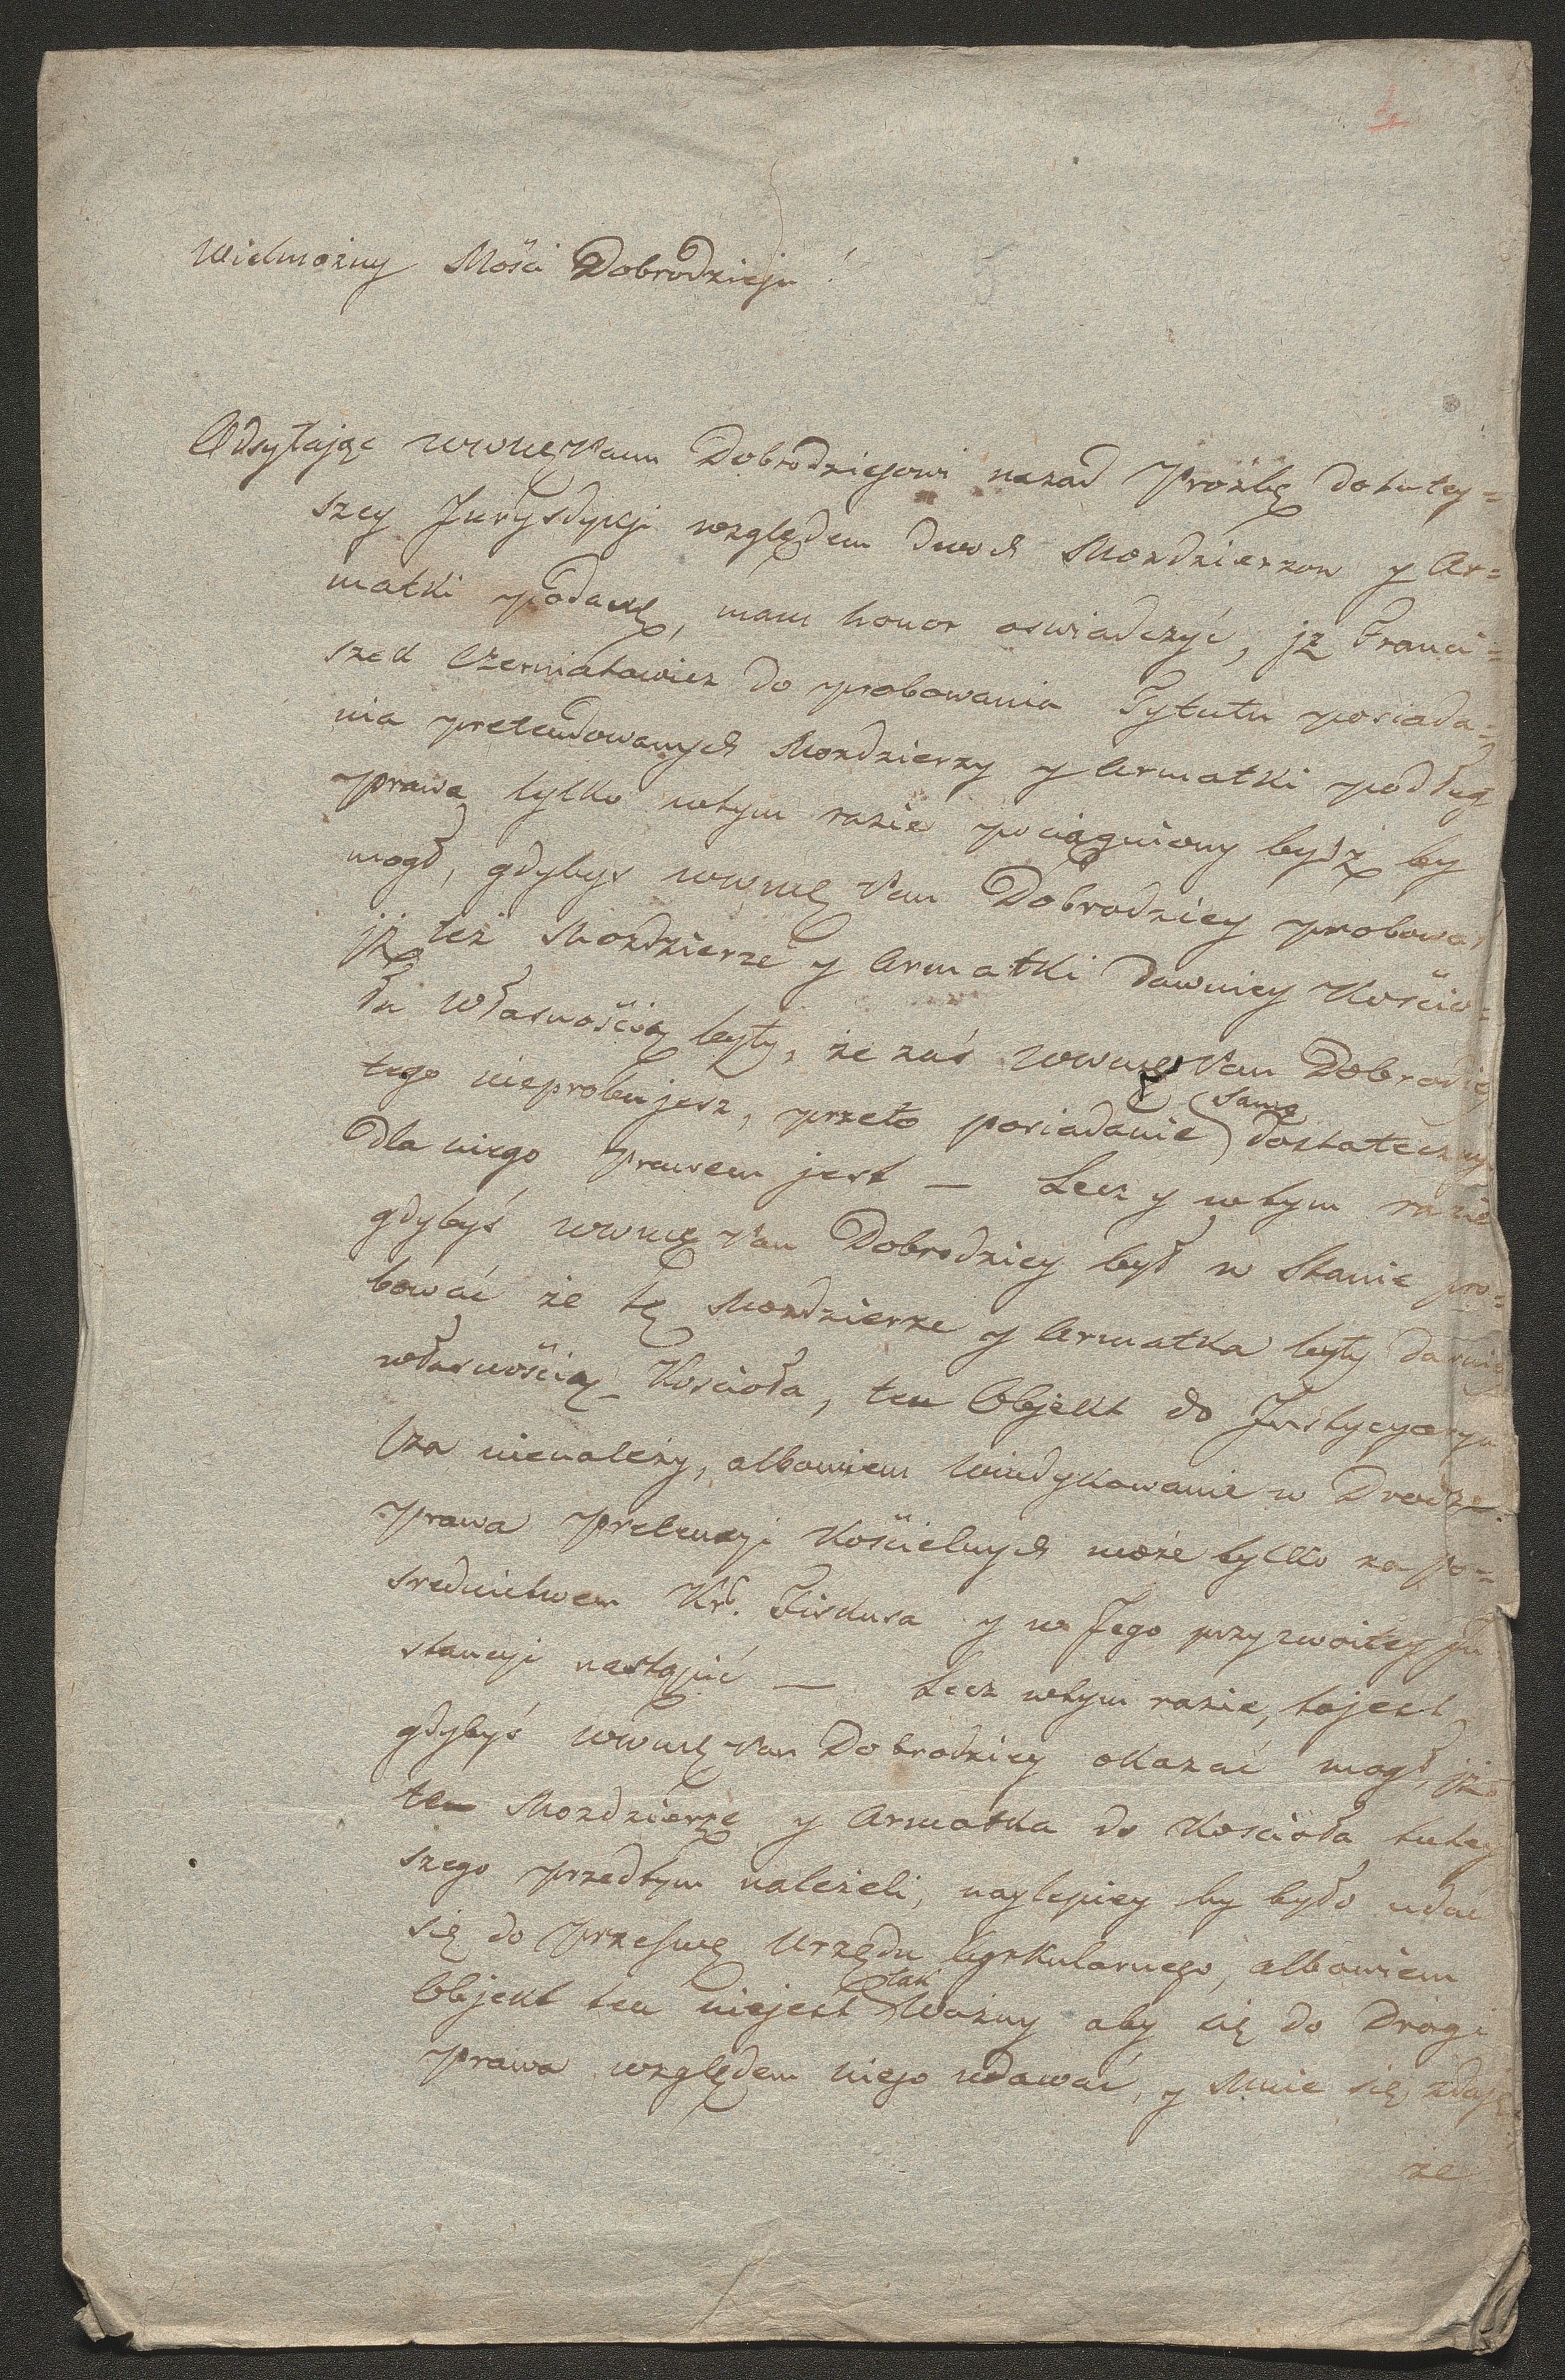 4
Wielmożny Mości Dobrodzieju!
Odsyłając WWMĘ Panu Dobrodziejowi nazad Proźbę do tutey=
szey Jurysdykcji względem dwoch Mozdzierzow y Ar=
matki podaną, mam honor oswiadczyć, jż Franci=
szek Czerniatowicz do probowania Tytułu posiada=
nia pretendowanych Mozdzierzy y Armatki podług
prawa tylko wtym razie pociągniony bydź by
mogł, gdybys WWMĘ Pan Dobrodziey probował
jż też Mozdzierze y Armatki dawniey Kościo=
ła Własnością były, że zaś WWMĘ Pan Dobrodziey
tego nieprobujesz, przeto posiadanie samo dostatecznym
dla niego Prawem jest — Lecz y wtym razie
gdybyś WWMĘ Pan Dobrodziey był w Stanie pro=
bować że tę Mozdzierze y Armatka były dawniey
własnością Kościoła, ten Objekt do Justycyaryu
sza nienależy, albowiem windykowanie w Drodze
prawa pretensyi Kościelnych może tylko za po=
srednictwem Kr. Fiskusa y w Jego przyzwoitey Jn
stancyi nastąpić — Lecz wtym razie, tojest
gdybyś WWMĘ Pan Dobrodziey okazać mogł, jż
te Mozdzierze y Armatka do Kościoła tutey
szego przedtym należeli, naylepiey by było udać
się do Prześwię Urzędu Cyrkularnego, albowiem
Objekt ten niejest tak Ważny aby się do Drogi
prawa względem niego udawać, y Mnie się zdaje
że